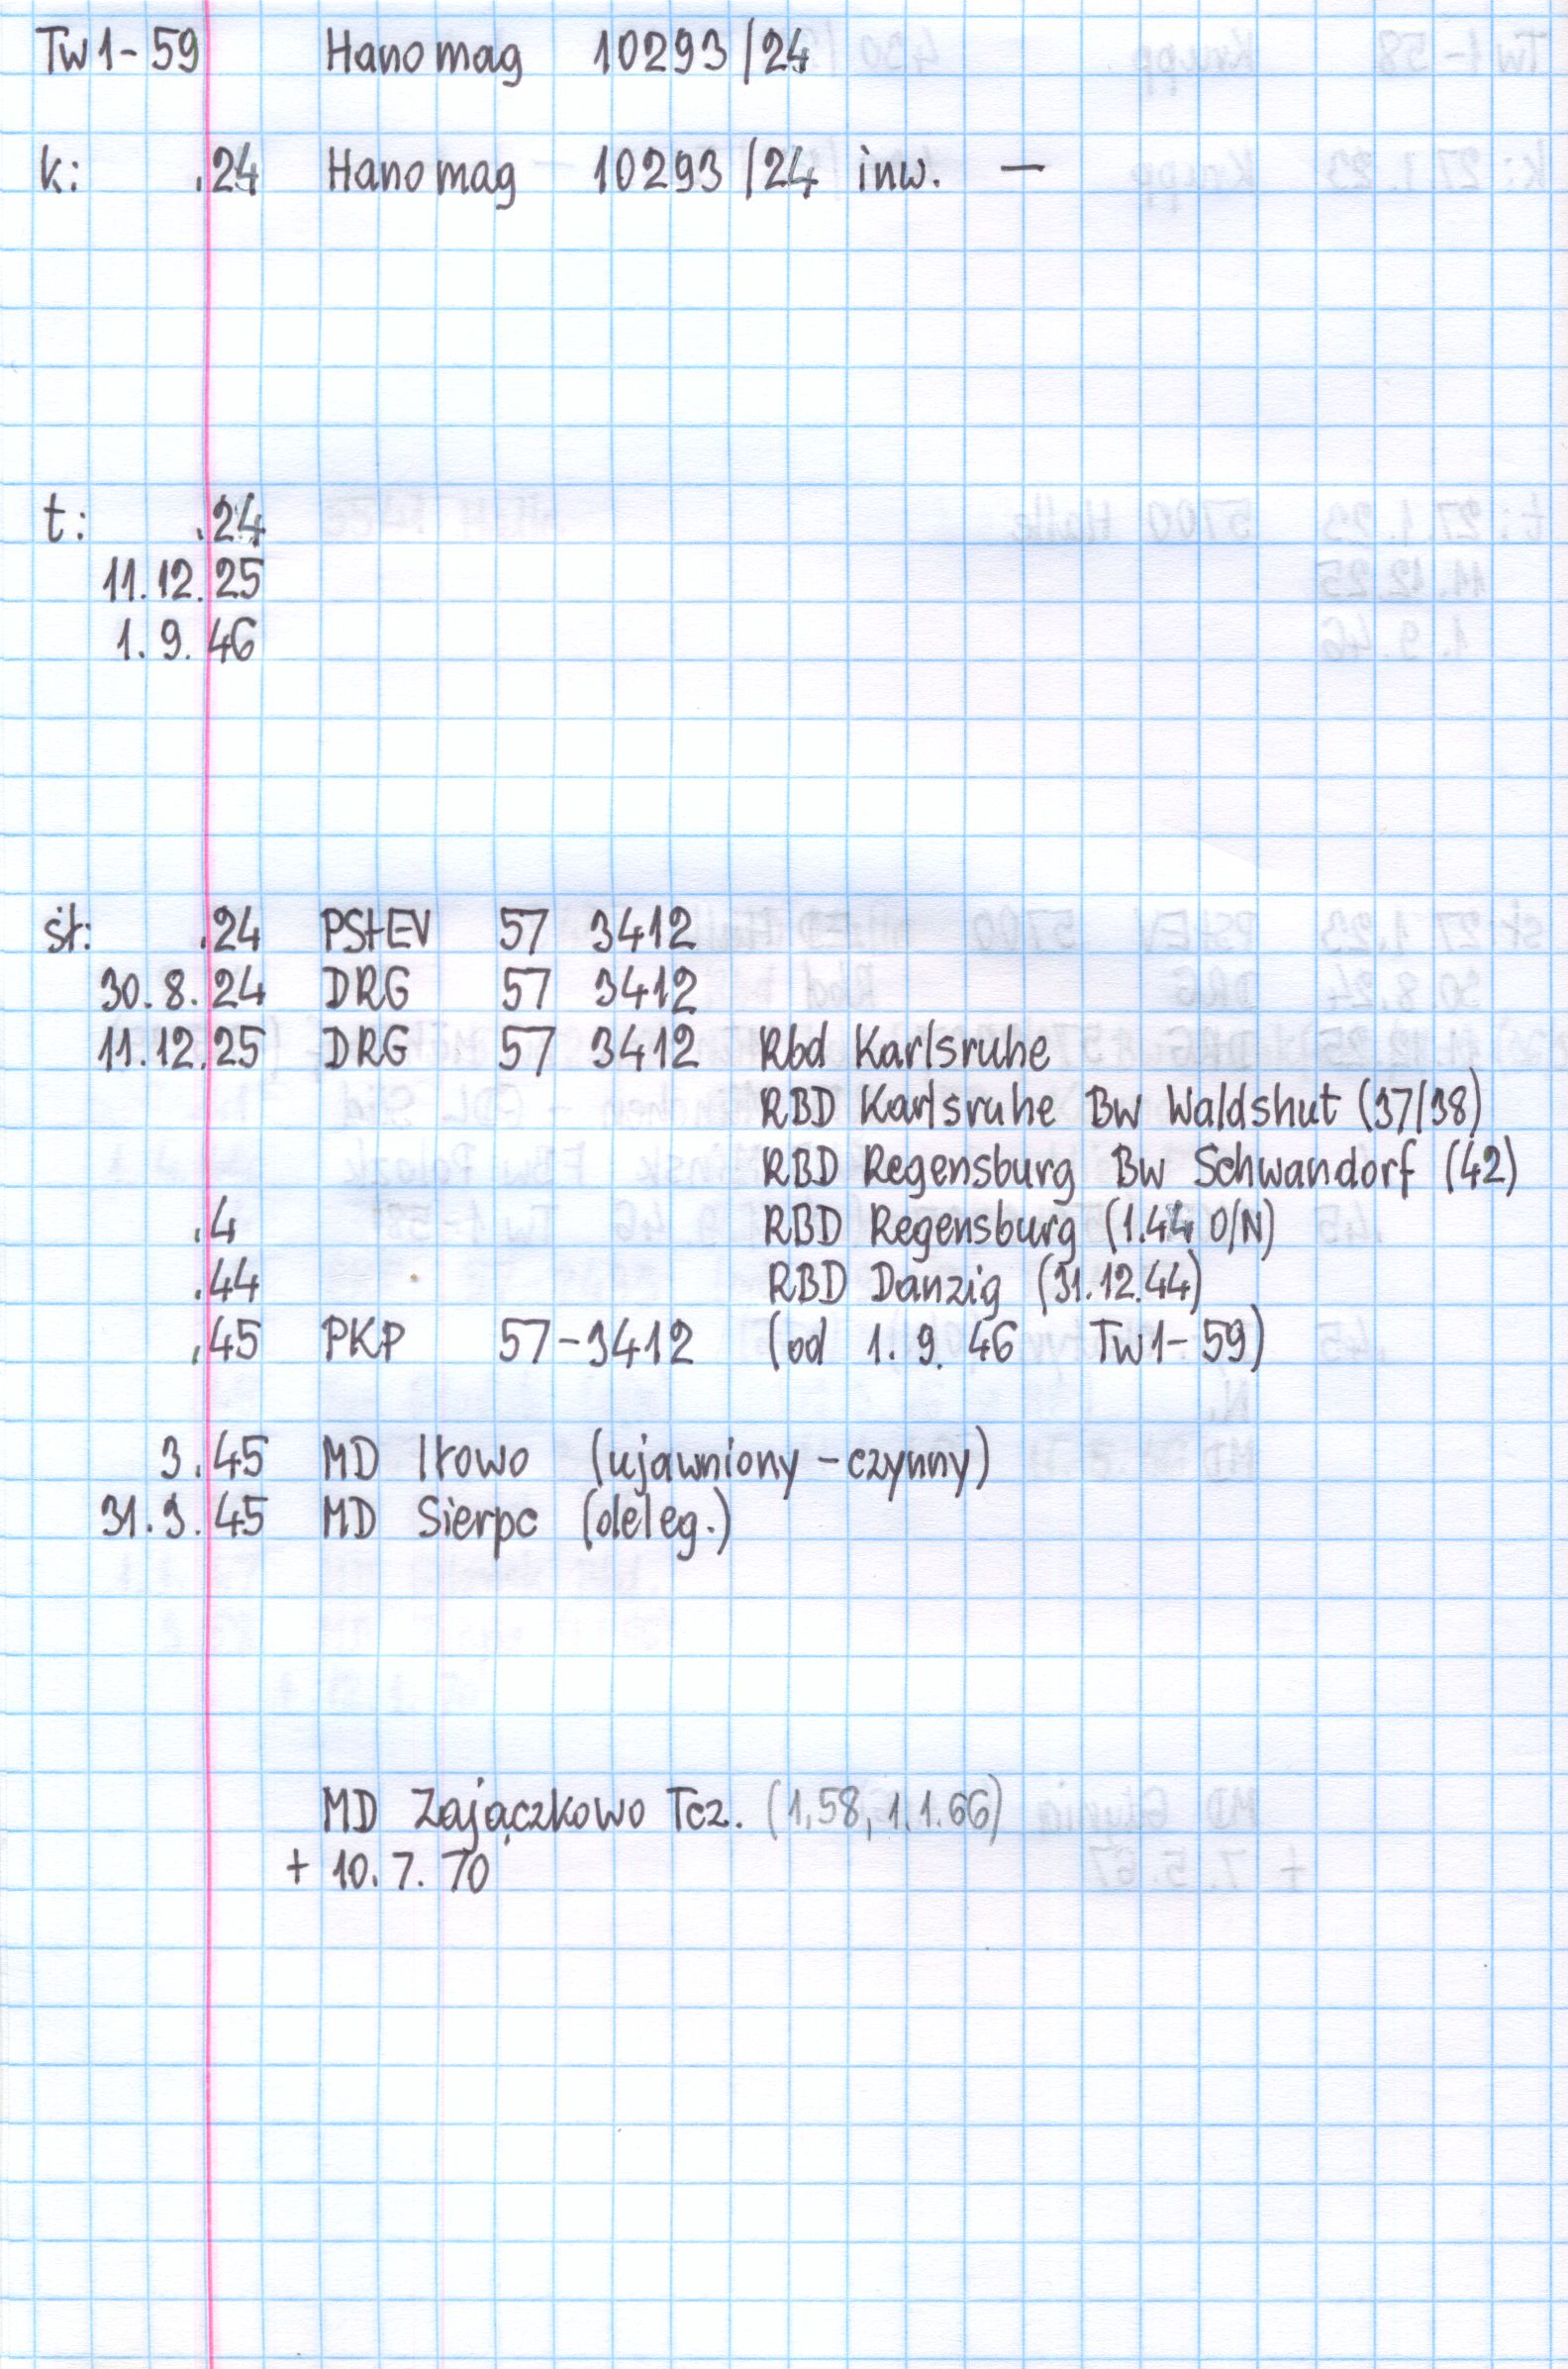 Tw1-59 Hanomag 10293/24
k: .24 Hanomag 10293/24 inw. —
t: .24
11.12.25
1.9.46
st: .24 PStEV 57 3412
30.8.24 DRG 57 3412
11.12.25 DRG 57 3412 Rbd Karlsruhe
RBD Karlsruhe Bw Waldshut (37/38)
RBD Regensburg Bw Schwandorf (42)
.4 RBD Regensburg (1.44 O/N)
.44 RBD Danzig (31.12.44)
.45 PKP 57-3412 (od 1.9.46 Tw1-59)
3.45 MD Iłowo (ujawniony - czynny)
31.3.45 MD Sierpc (deleg.)
MD Zajączkowo Tcz. (1.58, 1.1.66)
+ 10.7.70